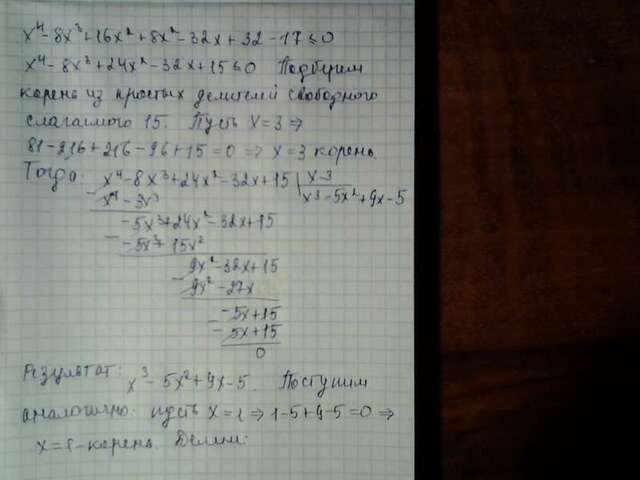 x⁴-8x³+16x²+8x²-32x+32-17≤0
x⁴-8x³+24x²-32x+15≤0 Подберем
корень из простых делителей свободного
слагаемого 15. Пусть x=3 ⇒
81-216+216-96+15=0 ⇒ x=3 корень.
Тогда: x⁴-8x³+24x²-32x+15 | x-3
- x⁴-3x³ x³-5x²+9x-5
-5x³+24x²-32x+15
- -5x³+15x²
9x²-32x+15
- 9x²-27x
-5x+15
- -5x+15
0
Результат: x³-5x²+9x-5. Поступим
аналогично: пусть x=1 ⇒ 1-5+9-5=0 ⇒
x=1-корень. Делим: